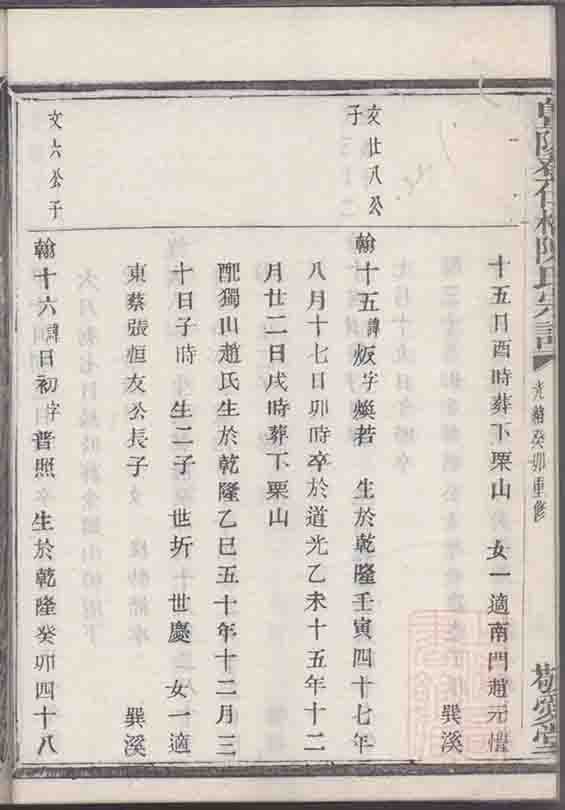 陳氏宗譜
光緒癸卯重修
敬愛堂
十五日酉時葬下栗山 女一適南門趙元
巽溪
文廿八公
子
翰十五諱炍字煥若 生於乾隆壬寅四十七年
八月十七日卯時卒於道光乙未十五年十二
月廿二日戌時葬下栗山
配獨山趙氏生於乾隆乙巳五十年十二月三
十日子時 生二子 世圻 世慶 女一適
東蔡張恒友公長子 巽溪
文六公子
翰十六諱日初字普照 生於乾隆癸卯四十八